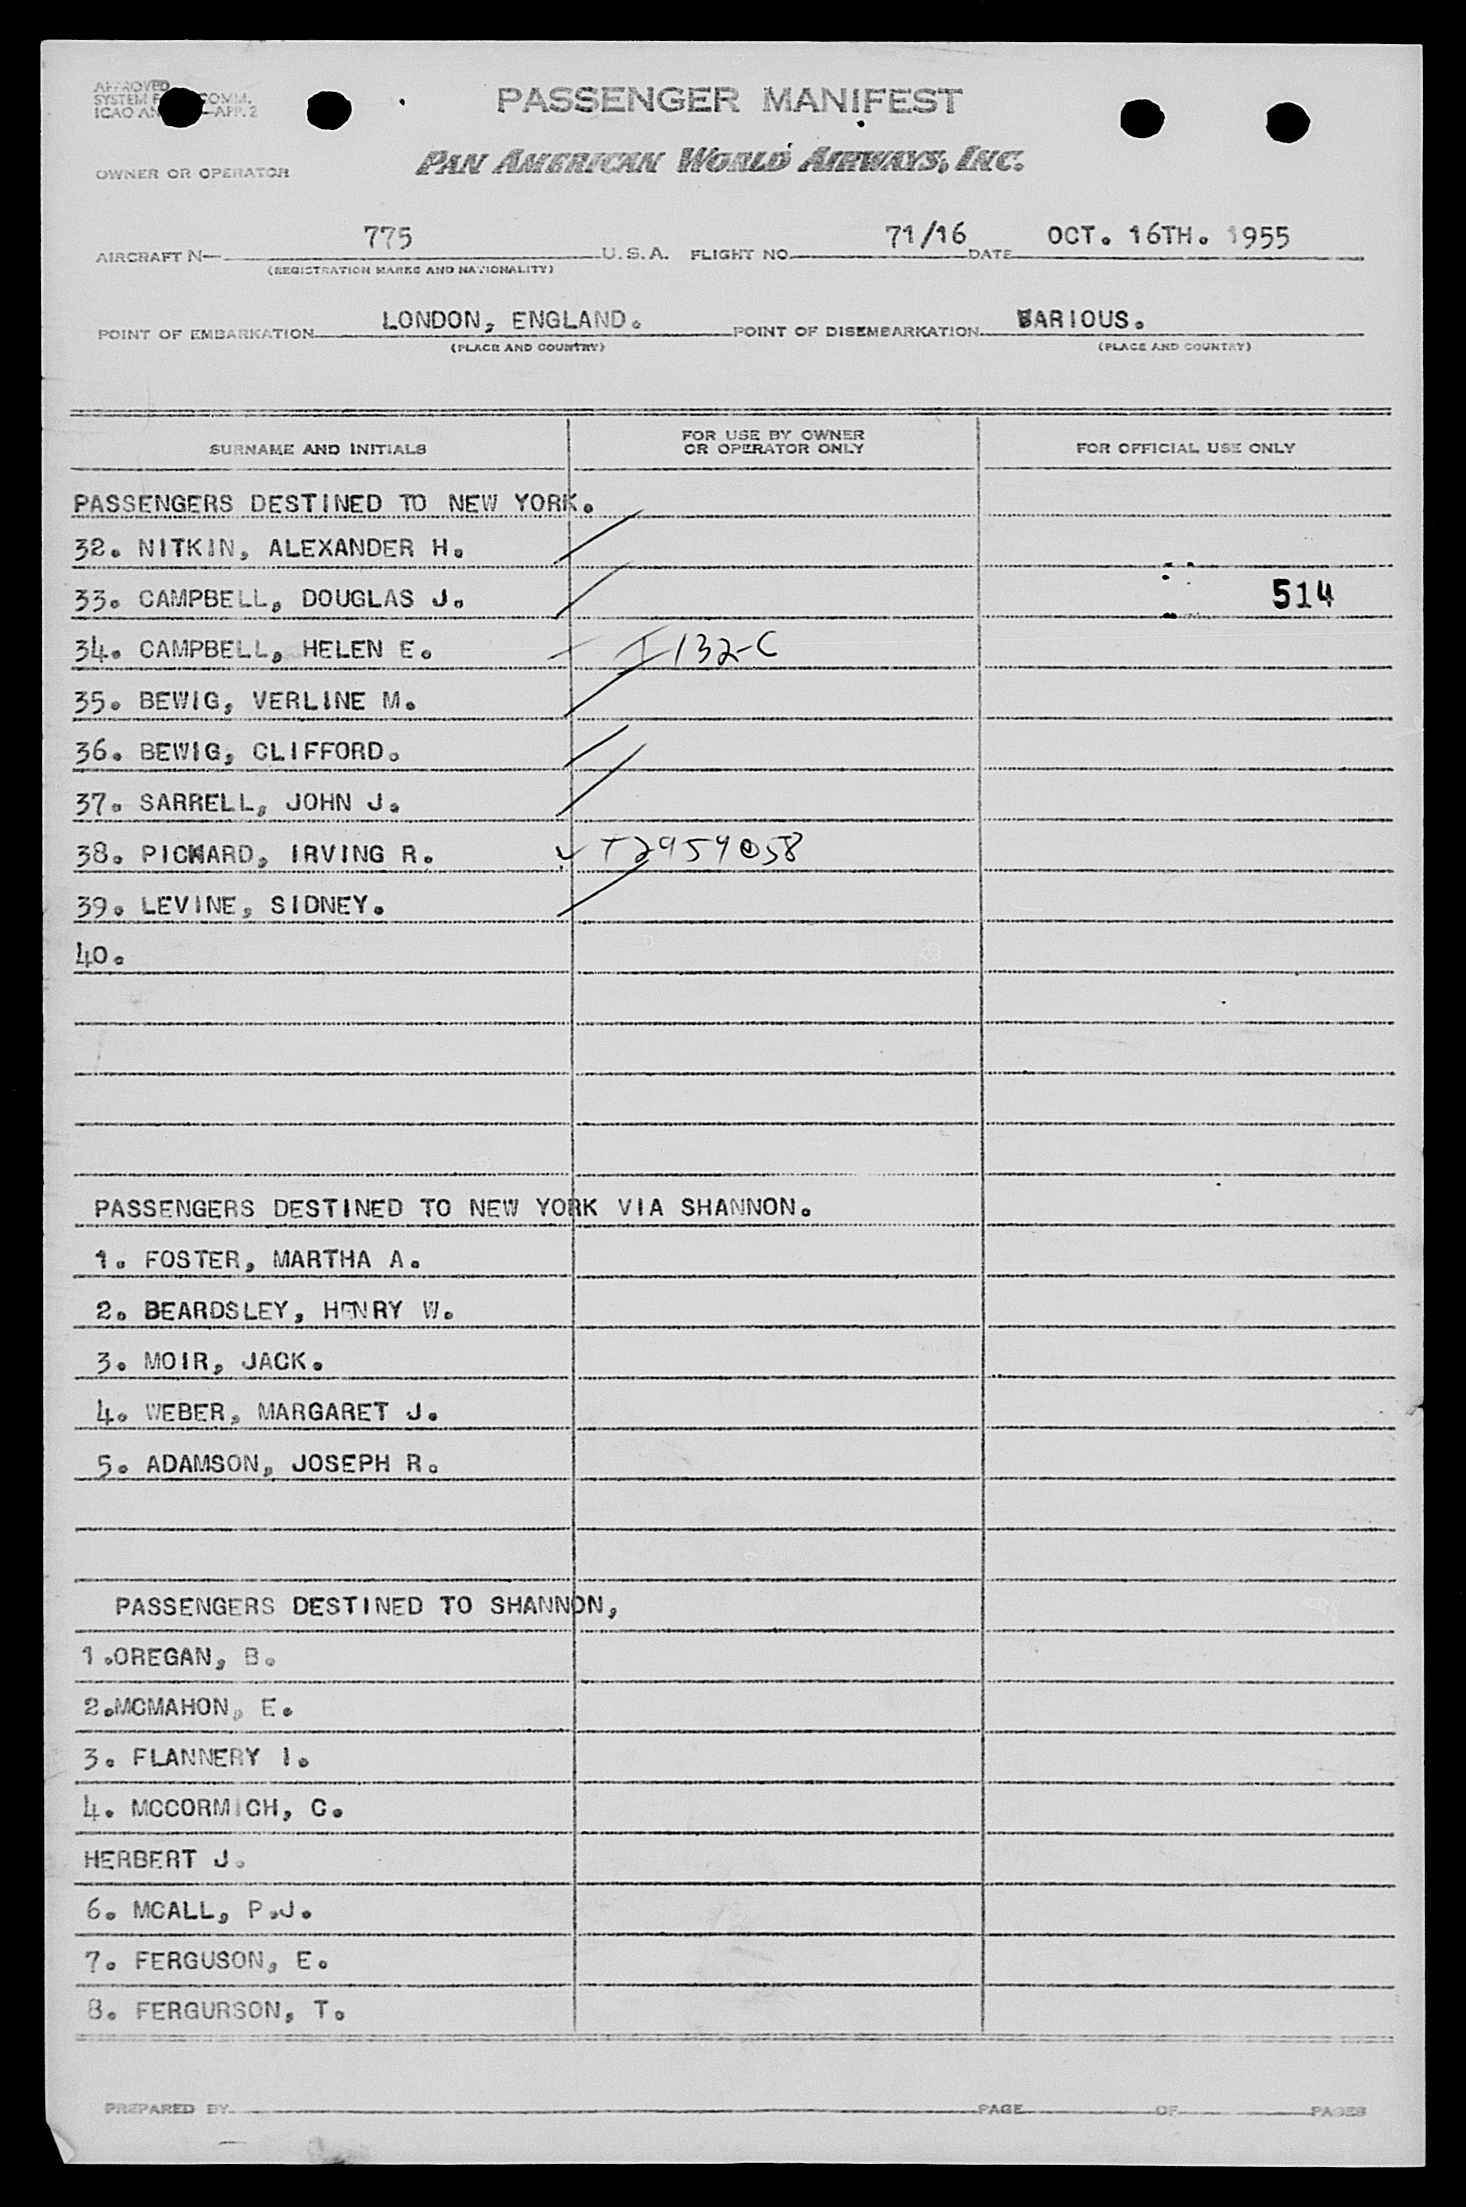 APPROVED
SYSTEM COMM.
ICAO AN —APP. 2
PASSENGER MANIFEST
OWNER OR OPERATOR
PAN AMERICAN WORLD AIRWAYS, INC.
AIRCRAFT N— 775 U. S. A. FLIGHT NO. 71/16 DATE OCT. 16TH. 1955
(REGISTRATION MARKS AND NATIONALITY)
POINT OF EMBARKATION LONDON, ENGLAND. POINT OF DISEMBARKATION VARIOUS.
(PLACE AND COUNTRY) (PLACE AND COUNTRY)
SURNAME AND INITIALS FOR USE BY OWNER OR OPERATOR ONLY FOR OFFICIAL USE ONLY
PASSENGERS DESTINED TO NEW YORK.
32. NITKIN, ALEXANDER H.
33. CAMPBELL, DOUGLAS J. 514
34. CAMPBELL, HELEN E. I 132-C
35. BEWIG, VERLINE M.
36. BEWIG, CLIFFORD.
37. SARRELL, JOHN J.
38. PICKARD, IRVING R. T2959058
39. LEVINE, SIDNEY.
40.
PASSENGERS DESTINED TO NEW YORK VIA SHANNON.
1. FOSTER, MARTHA A.
2. BEARDSLEY, HENRY W.
3. MOIR, JACK.
4. WEBER, MARGARET J.
5. ADAMSON, JOSEPH R.
PASSENGERS DESTINED TO SHANNON,
1.OREGAN, B.
2.MCMAHON, E.
3. FLANNERY I.
4. MCCORMICH, C.
HERBERT J.
6. MCALL, P.J.
7. FERGUSON, E.
8. FERGURSON, T.
PREPARED BY PAGE OF PAGES